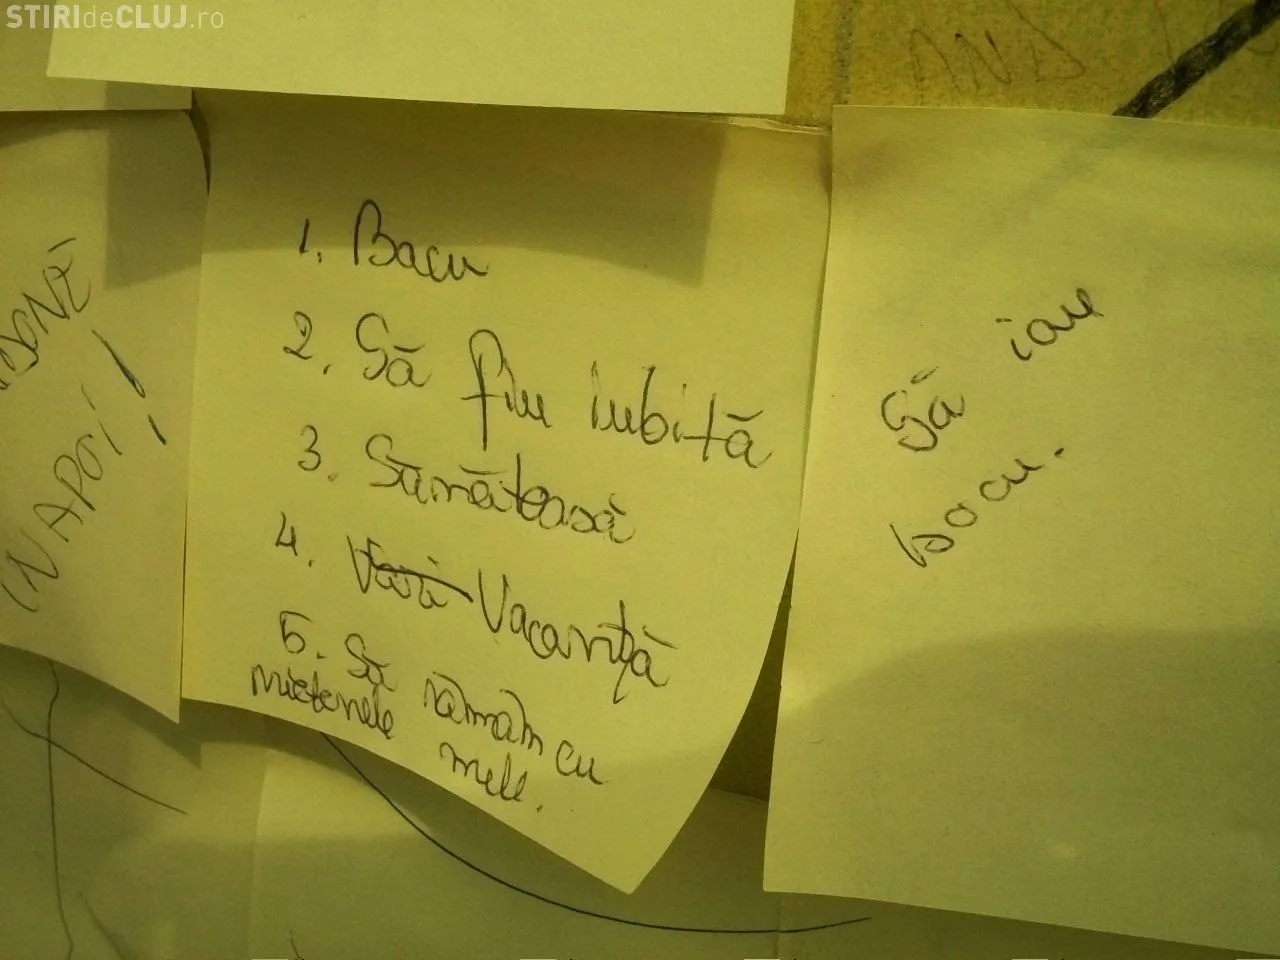 STIRIdeCLUJ.ro
AND
ÎNAPOI!
1. Bacu
2. Să fiu iubită
3. Sănătoasă
4. Vacanță
5. Să rămân cu
mele.
Să iau
bacu.